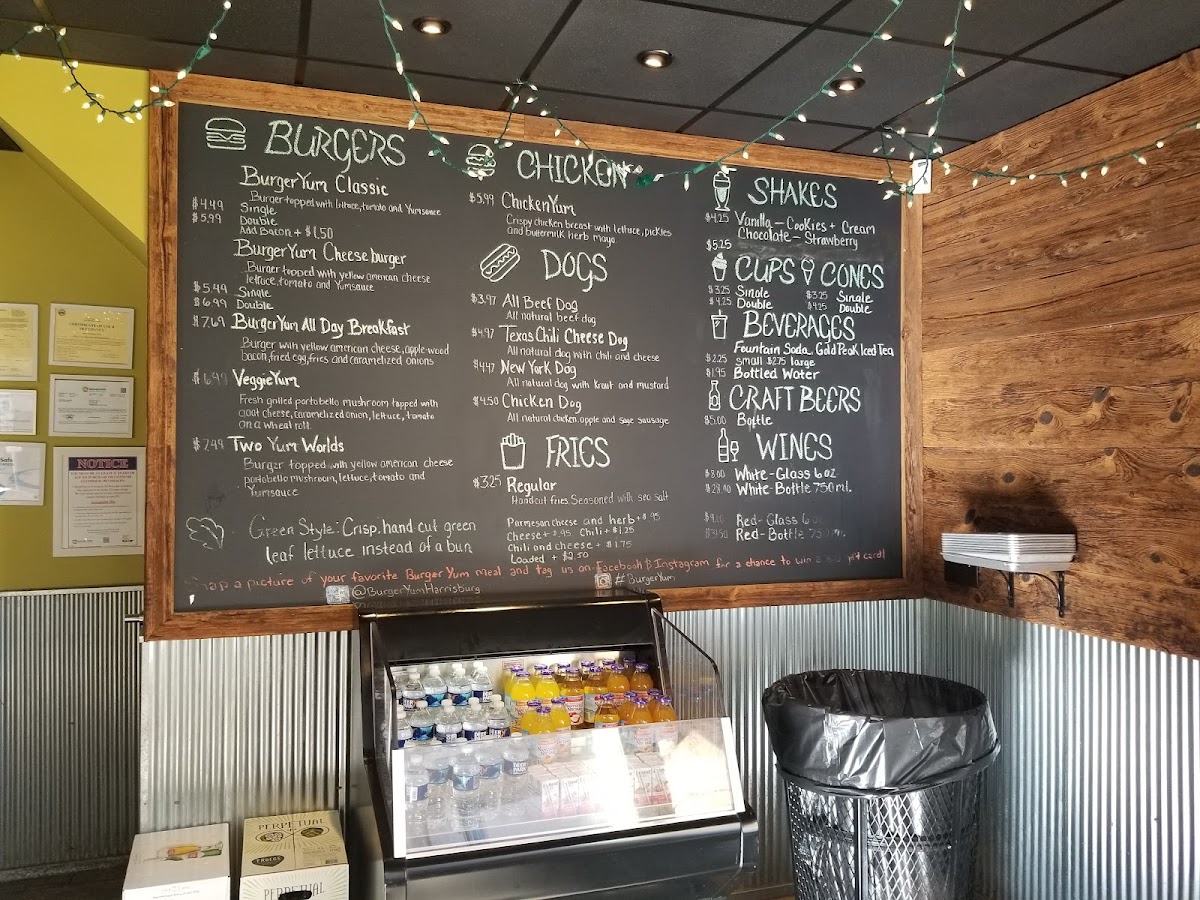 BURGERS
BurgerYum Classic
Burger topped with lettuce, tomato and Yumsauce
$4.49 Single
$5.99 Double
Add Bacon + $1.50
BurgerYum Cheeseburger
Burger topped with yellow american cheese
lettuce, tomato and Yumsauce
$5.49 Single
$6.99 Double
$7.69 BurgerYum All Day Breakfast
Burger with yellow american cheese, apple-wood
bacon, fried egg, fries and caramelized onions
$6.99 VeggieYum
Fresh grilled portobello mushroom topped with
goat cheese, caramelized onion, lettuce, tomato
on a wheat roll.
$7.49 Two Yum Worlds
Burger topped with yellow american cheese
portobello mushroom, lettuce, tomato and
Yumsauce
Green Style: Crisp, hand cut green
leaf lettuce instead of a bun
CHICKEN
$5.99 ChickenYum
Crispy chicken breast with lettuce, pickles
and buttermilk herb mayo
DOGS
$3.97 All Beef Dog
All natural beef dog
$4.97 Texas Chili Cheese Dog
All natural dog with chili and cheese
$4.47 New York Dog
All natural dog with kraut and mustard
$4.50 Chicken Dog
All natural chicken, apple and sage sausage
FRIES
$3.25 Regular
Handcut fries. Seasoned with sea salt
Parmesan cheese and herb + $.95
Cheese + $.95 Chili + $1.25
Chili and cheese + $1.75
Loaded + $2.50
SHAKES
$4.25 Vanilla - Cookies + Cream
Chocolate - Strawberry
$5.25
CUPS CONES
$3.25 Single $3.25 Single
$4.25 Double $4.25 Double
BEVERAGES
Fountain Soda, Gold Peak Iced Tea
$2.25 Small $2.75 large
$1.95 Bottled Water
CRAFT BEERS
$5.00 Bottle
WINES
$8.00 White-Glass 6 oz
White-Bottle 750 ml.
Red-Glass 6
Red-Bottle 750 ml.
a picture of your favorite BurgerYum meal and tag us on Facebook & Instagram for a chance to win a gift card!
@BurgerYumHarrisburg
#BurgerYum
NOTICE
DEER PARK
PERPETUAL
TROEGS
PERPETUAL